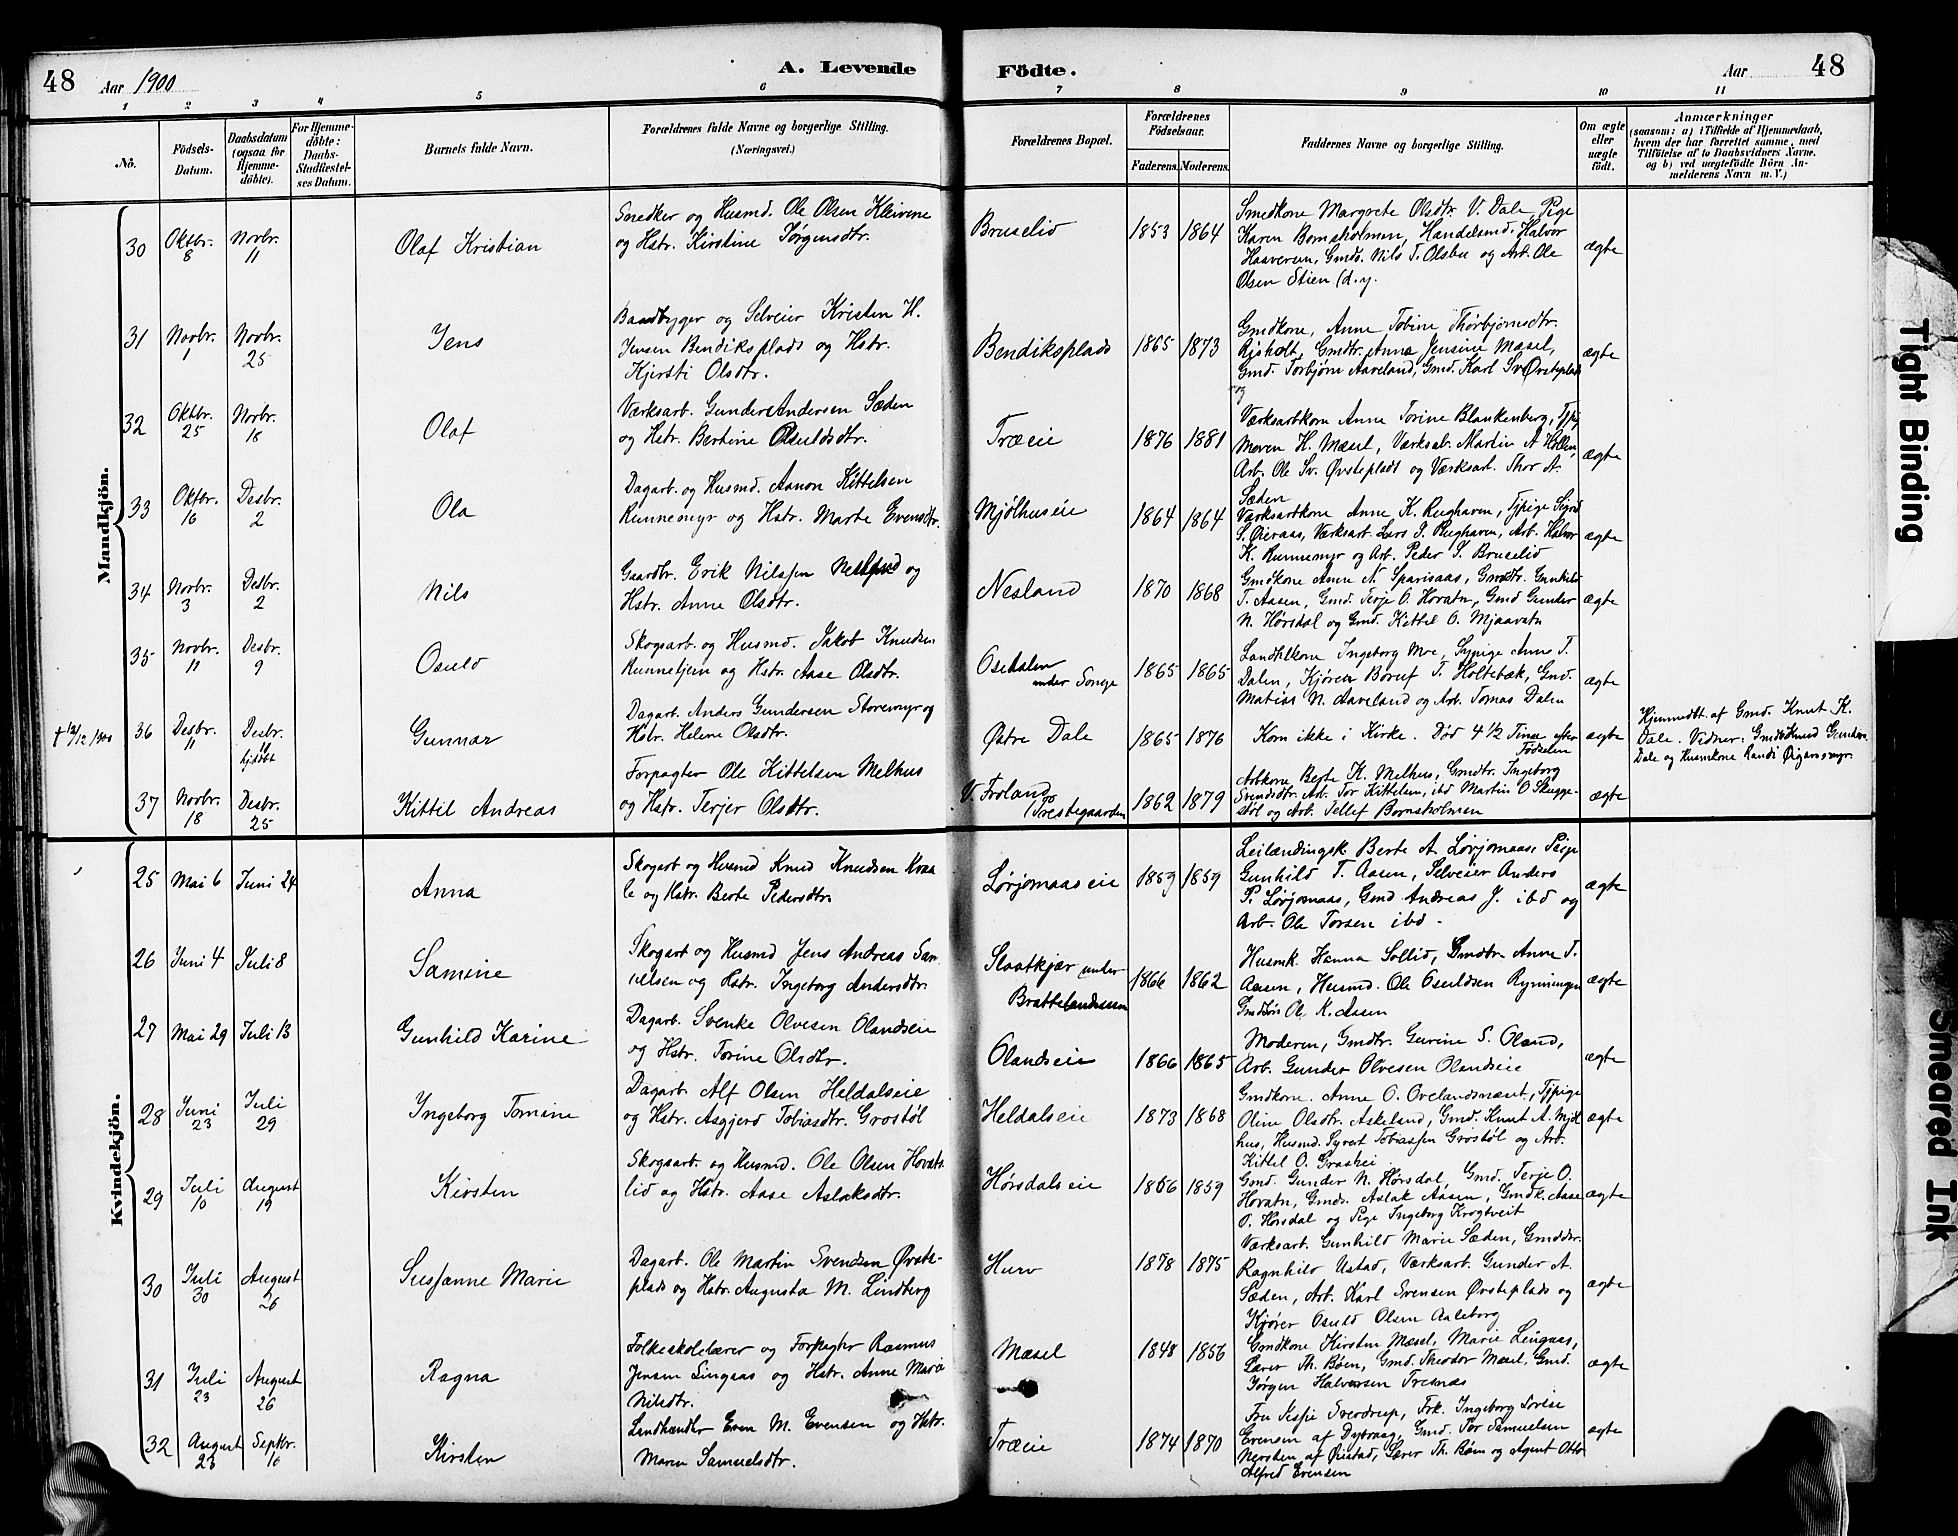 48 Aar 1900 A. Levende Födte. Aar 48
1 2 3 4 5 6 7 8 9 10 11
No.
Födsels-Datum.
Daabsdatum (ogsaa for Hjemme-döbte).
For Hjemme-döbte: Daabs-Stadfæstel-ses Datum.
Barnets fulde Navn.
Forældrenes fulde Navne og borgerlige Stilling.
(Næringsvei.)
Forældrenes Bopæl.
Forældrenes Födselsaar.
Faderens. Moderens.
Faddernes Navne og borgerlige Stilling.
Om ægte eller uægte födt.
Anmærkninger
(saasom: a) i Tilfælde af Hjemmedaab,
hvem der har forrettet samme, med
Tilföielse af to Daabsvidners Navne,
og b) ved uægtefödte Börn An-
melderens Navn m. V.)
Mandkjön.
30 Oktbr. 8 Novbr. 11 Olaf Kristian
Snedker og Husmd. Ole Olsen Kleivene
og Hstr. Kirstine Jørgensdtr.
Bruselid 1853 1864
Smedkone Margrete Olsdtr. V. Dale, Pige
Karen Bornsholmen, Handelsmd. Halvor
Haaverun, Gmds. Nils T. Olsbu og Arb. Ole
Olsen Stien (d. y.
ægte
31 Novbr. 1 Novbr. 25 Jens
Baadbygger og Selveier Kristen H.
Jensen Bendiksplads og Hstr.
Kjersti Olsdtr.
Bendiksplads 1865 1873
Gmdkone, Anne Tobine Thorbjørnsdtr.
Risholt, Gmdtr. Anna Jensine Mæsel,
Gmd. Torbjørn Aaveland, Gmd. Karl Sv. Østeplads
ægte
32 Oktbr. 25 Novbr. 18 Olaf
Værksarb. Gunder Andersen Sæden
og Hstr. Bertine Osuldsdtr.
Træeie 1876 1881
Værksarbkon Anne Torine Blankenberg, Tjpi
Maren H. Mæsel, Værksab. Martin A Hollen,
Arb. Ole Sv. Øvsteplads og Værksarb. Thor A.
Sæden
ægte
33 Oktbr. 16 Desbr. 2 Ola
Dagarb. og Husmd. Aanon Kittelsen
Runnemyr og Hstr. Marte Evensdtr.
Mjølhuseie 1864 1864
Værksarbkone Anne K. Rughaven, Tjpige Sigrid
S. Øieraas, Værksarb. Lars P. Rughaven, Arb. Halvor
K. Runnemyr og Arb. Peder T. Bruselid
ægte
34 Novbr. 3 Desbr. 2 Nils
Gaardbr. Erik Nilssen Nesland og
Hstr. Anne Olsdtr.
Nesland 1870 1868
Gmdkone Anne N. Sparisaas, Gmdtr. Gunhild
T. Aasen, Gmd. Terje O. Horatn, Gmd Gunder
N. Hørsdal og Gmd. Kittil O. Mjaavatn
ægte
35 Novbr. 11 Desbr. 9 Osuld
Skogsarb. og Husmd. Jakob Knudsen
Runnetjern og Hstr. Aase Olsdtr.
Osedalen
under Songe
1865 1865
Landhlkone Ingeborg Moe, Sypige Anne T.
Dalen, Kjører T. Holtebæk, Gmd.
Matias N. Aaveland og Arb. Tomas Dalen
ægte
† 12/12 1900 36 Desbr. 11 Desbr. 11 hjdøbt Gunnar
Dagarb. Anders Gundersen Storemyr og
Hstr. Helene Olsdtr.
Østre Dale 1865 1876
Kom ikke i Kirke. Død 4 1/2 Time efter
Fødselen
ægte
Hjemmedbt. af Gmd. Knut K.
Dale. Vidner: Gmds Knud Gunders
Dale og Husmkone Randi Øigarsmyr.
37 Novbr. 18 Desbr. 25 Kittil Andreas
Forpagter Ole Kittelsen Melhus
og Hstr. Terjer Olsdtr.
V. Froland
(Prestegaarden
1862 1879
Arbkone Berte K. Melhus, Gmdtr. Ingeborg
Svendsdtr. Arb. Tor Kittelsen, ibd Martin O Skugge-
støl og Arb. Tellef Bornsholmen
ægte
Kvindekjön.
25 Mai 6 Juni 24 Anna
Skogarb og Husmd Knud Knudsen Kvaa
le og Hstr. Berte Pedersdtr.
Lørjomaaseie 1859 1859
Leilændingsk. Berte A. Lørjomaas, Pige
Gunhild T. Aasen, Selveier Anders
P. Lørjomaas, Gmd Andreas J. ibd og
Arb. Ole Torsen ibd.
ægte
26 Juni 4 Juli 8 Samine
Skogarb og Husmd Jens Andreas Sam
uelsen og Hstr. Ingeborg Andersdtr.
Slaatkjær under
Brattelandsaasen
1866 1862
Husmk. Hanna Sollid, Gmdtr. Anne T.
Aasen, Husmd. Ole Osuldsen Rynningen
Gmdsøn Ole K. Aasen
ægte
27 Mai 29 Juli 13 Gunhild Karine
Dagarb. Svenke Olvesen Olandseie
og Hstr. Torine Olsdtr.
Olandseie 1866 1865
Moderen, Gmdtr. Gurine S. Oland,
Arb. Gunder Olvesen Olandseie
ægte
28 Juni 23 Juli 29 Ingeborg Tomine
Dagarb. Alf Olsen Heldalseie
og Hstr. Asgjerd Tobiasdtr. Grostøl
Heldalseie 1873 1868
Gmdkone. Anne O. Ovelandsnæset, Tjpige
Oline Olsdtr. Askeland, Gmd. Knut A. Mjøl
hus, Husmd. Syvert Tobiassen Grostøl og Arb.
Kittel O.
ægte
29 Juli 10 August 19 Kirsten
Skogsarb. og Husmd. Ole Olsen Hovats
lid og Hstr. Aase Aslaksdtr.
Hørsdalseie 1866 1859
Gmd. Gunder N. Hørsdal, Gmd. Terje O.
Hovatn, Gmds. Aslak Aasen, Gmdk. Aase
O. Hørsdal og Pige Ingeborg Krogtveit
ægte
30 Juli 30 August 26 Susanne Marie
Dagarb. Ole Martin Svendsen Øvste-
plads og Hstr. Augusta M. Lindberg
Hurv 1878 1875
Værksarb. Gunhild Marie Sæden, Gmddtr.
Ragnhild Ustad, Værksarb. Gunder A.
Sæden, Arb. Karl Svensen Øvsteplads og
Kjører Osuld Olsen Aaleborg
ægte
31 Juli 23 August 26 Ragna
Folkeskolelærer og Forpagter Rasmus
Jensen Lingaas og Hstr. Anne Marie
Nilsdtr.
Mæsel 1848 1856
Gmdkone Kirsten Mæsel, Marie Lingaas,
Lærer Th. Bøen, Gmd. Theodor Mæsel, Gmd.
Jørgen Halvorsen Trefnæs
ægte
32 August 23 Septbr. 16 Kirsten
Landhandler Even M. Evensen og Hstr.
Maren Samuelsdtr.
Træeie 1874 1870
Fru Sverdrup, Frk. Ingeborg Lovise
Evensen af Dybvaag, Gmd. Tor Samuelsen
Nersten af Øiestad, Lærer Th. Bøen og Agent Otto
Alfred Evensen
ægte
Tight Binding
Smeared Ink